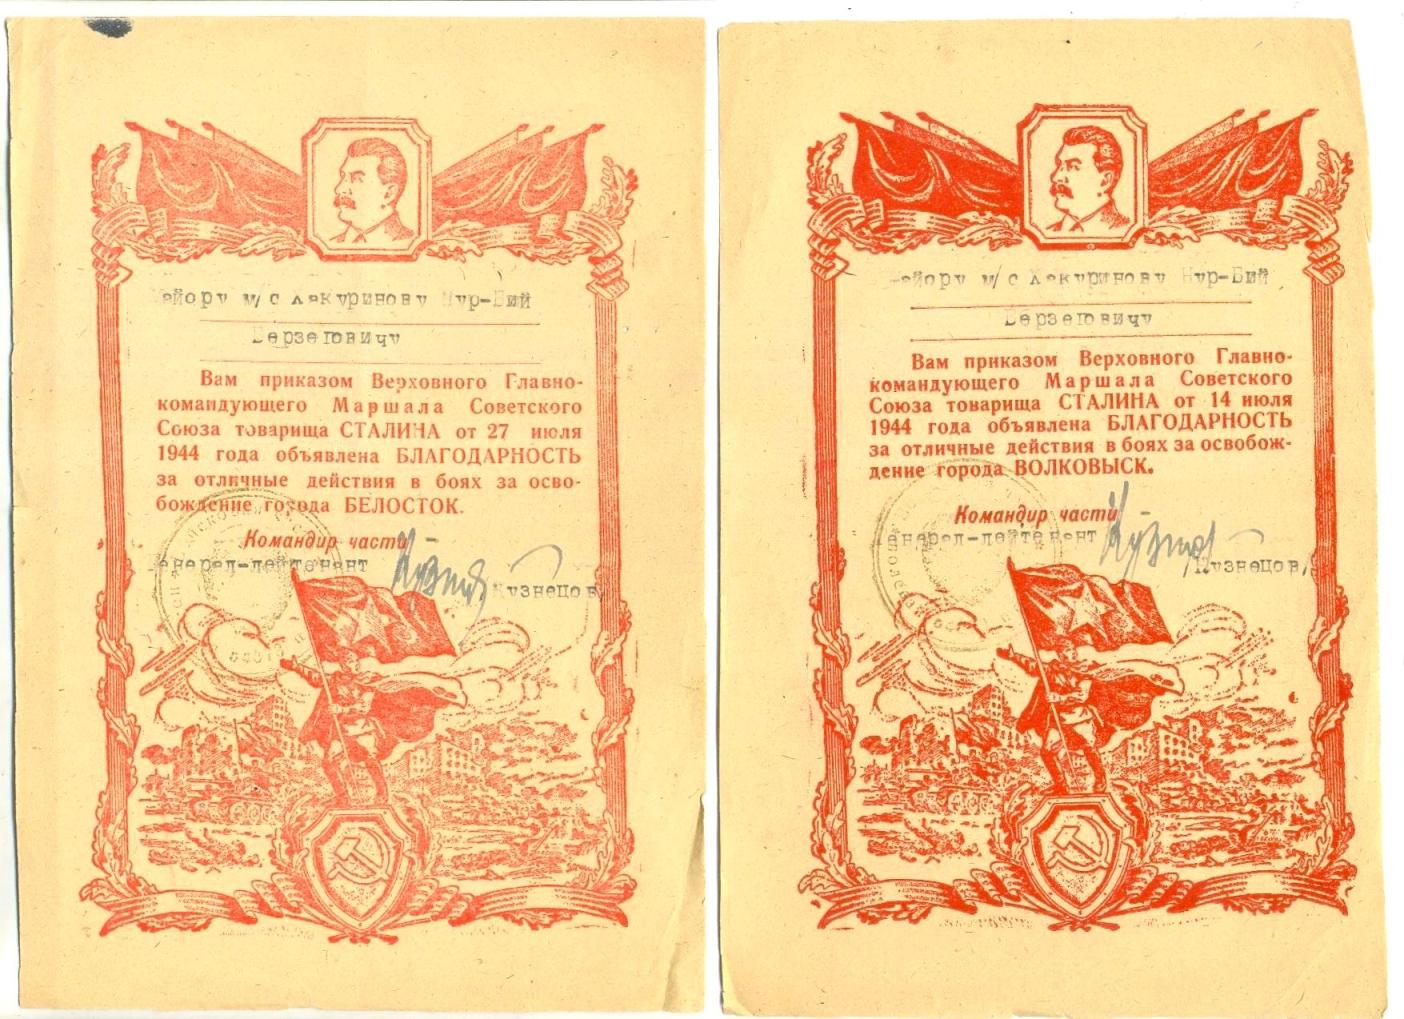 Майору м/с Хакуринову Нур-Бий
Берзеговичу
Вам приказом Верховного Главно-
командующего Маршала Советского
Союза товарища СТАЛИНА от 27 июля
1944 года объявлена БЛАГОДАРНОСТЬ
за отличные действия в боях за осво-
бождение города БЕЛОСТОК.
Командир части
Генерал-лейтенант
/Кузнецов/
Майору м/с Хакуринову Нур-Бий
Берзеговичу
Вам приказом Верховного Главно-
командующего Маршала Советского
Союза товарища СТАЛИНА от 14 июля
1944 года объявлена БЛАГОДАРНОСТЬ
за отличные действия в боях за освобож-
дение города ВОЛКОВЫСК.
Командир части
Генерал-лейтенант
/Кузнецов/